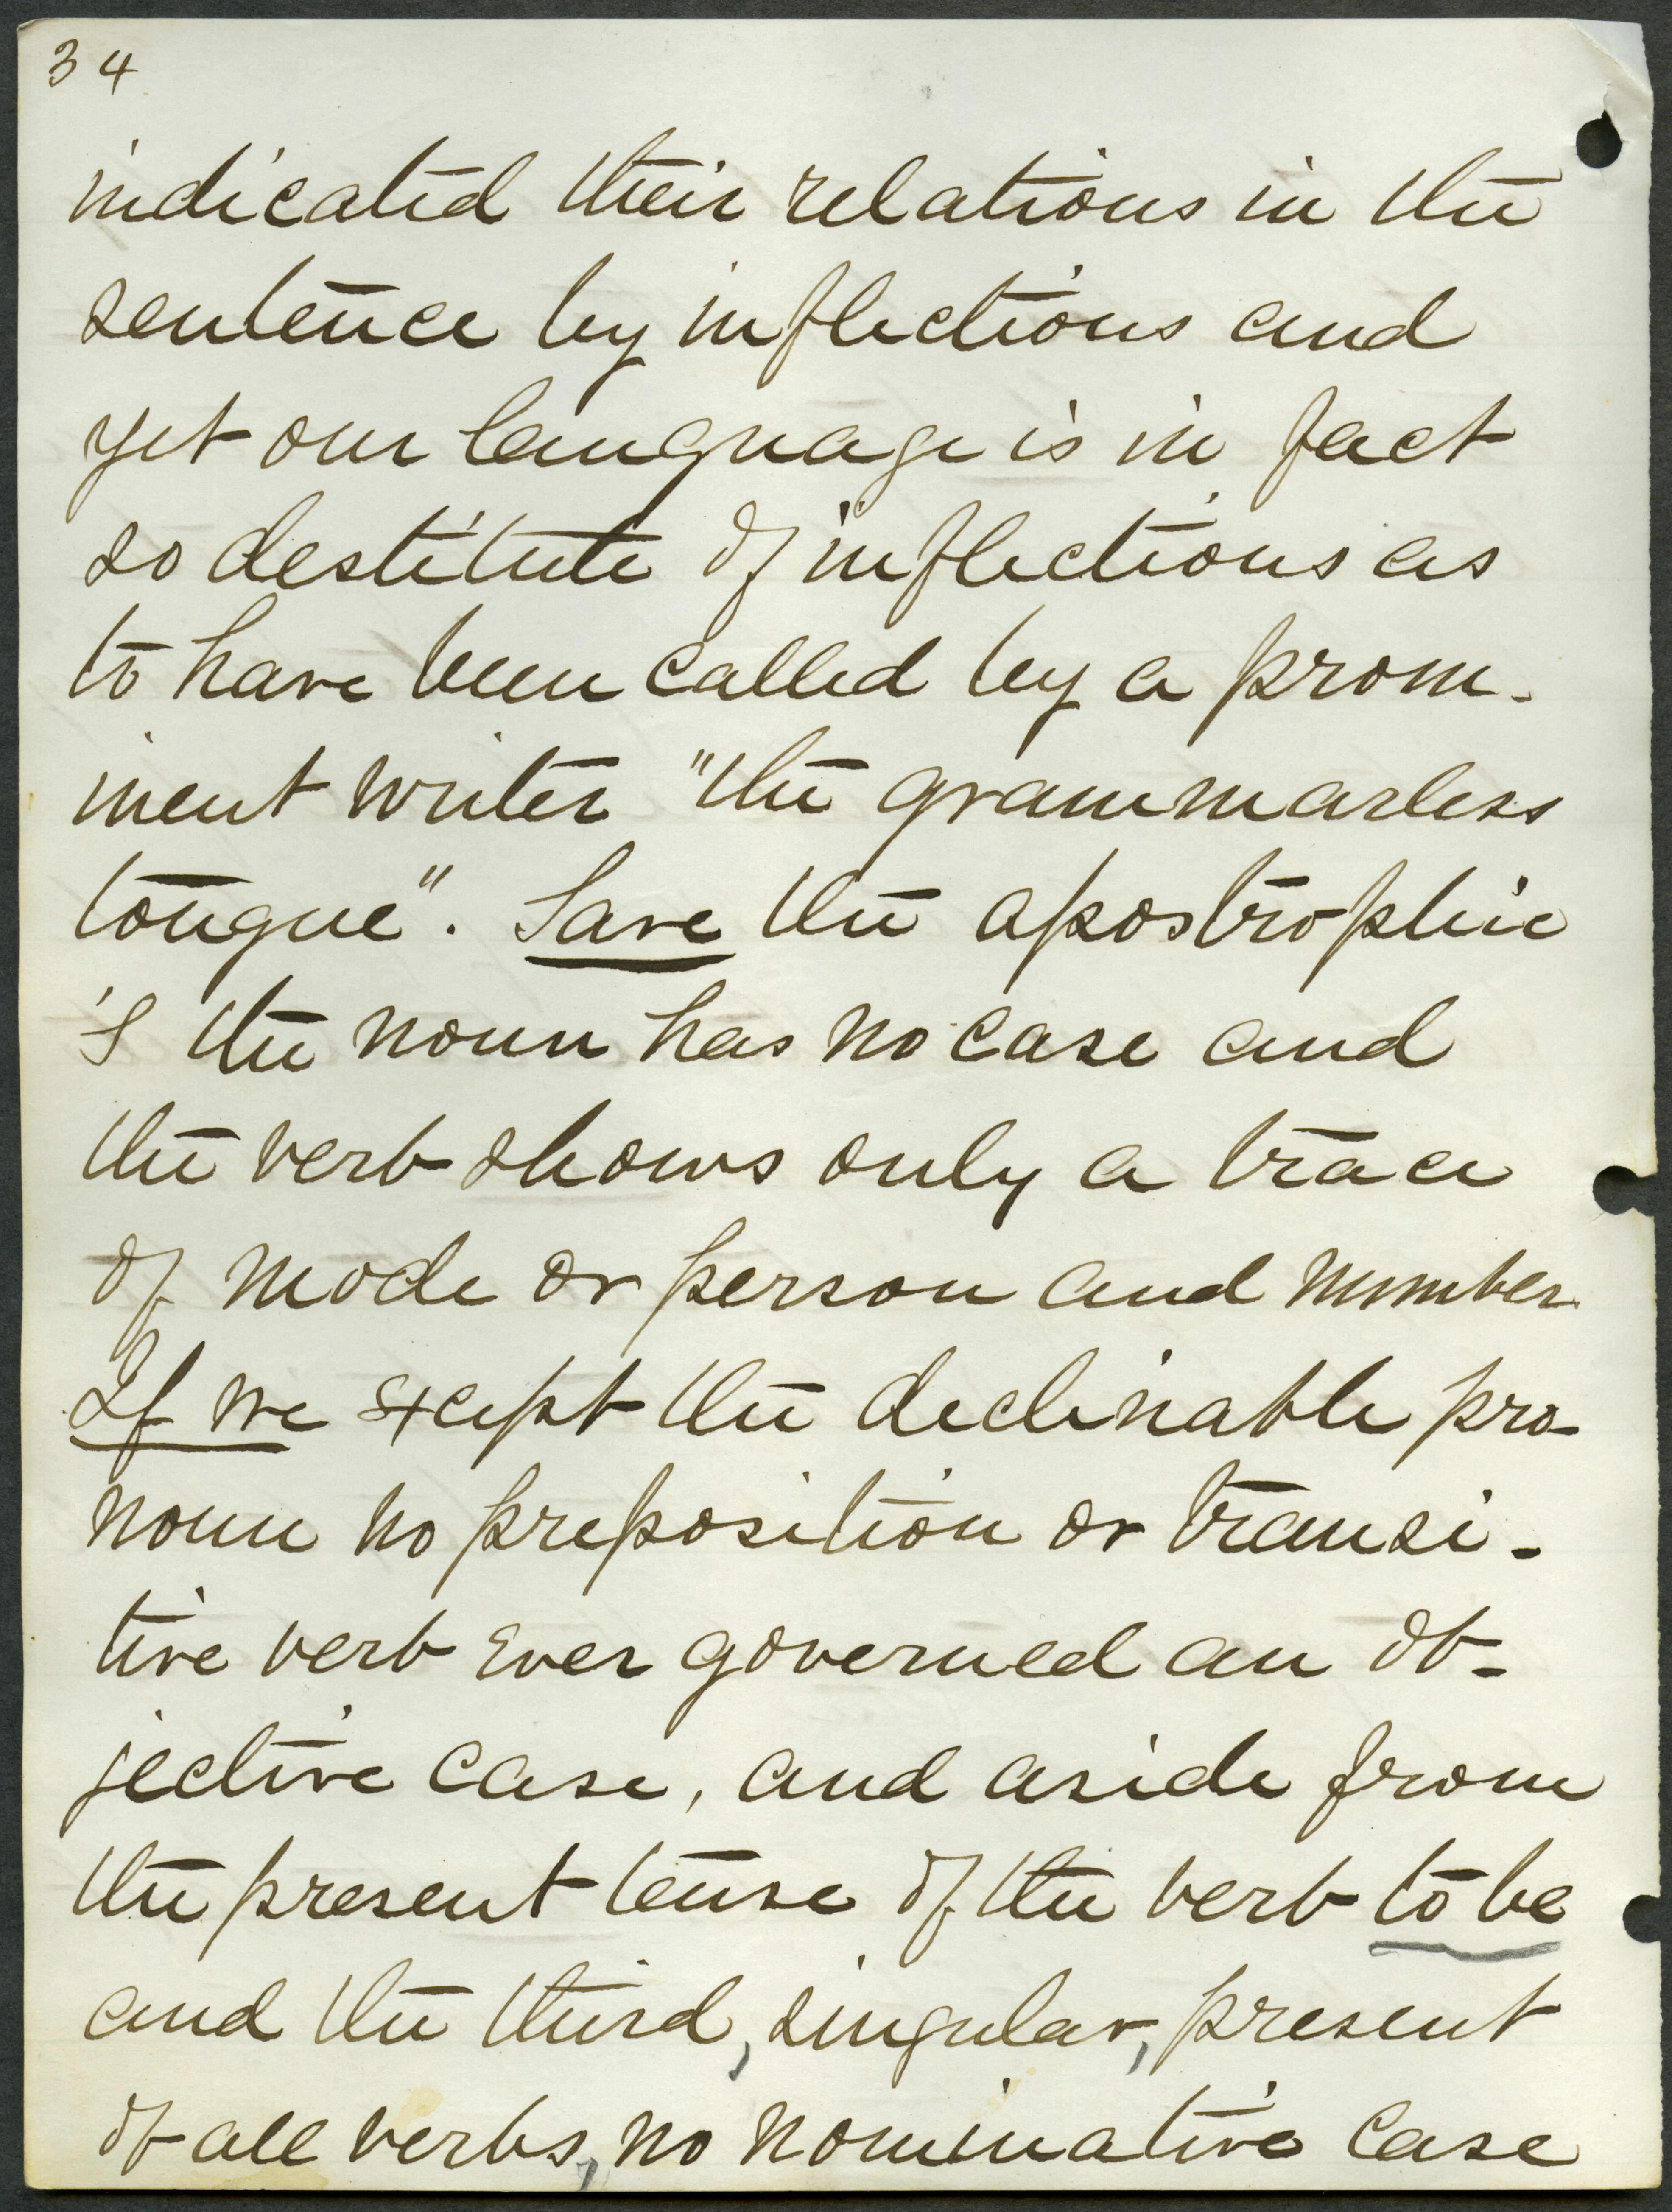 34
indicated their relations in the
sentence by inflections and
yet our language is in fact
so destitute of inflections as
to have been called by a prom-
inent writer "the grammarless
tongue". Save the apostrophic
's the noun has no case and
the verb shows only a trace
of mode or person and number.
If we except the declinable pro-
noun no preposition or transi-
tive verb ever governed an ob-
jective case, and aside from
the present tense of the verb to be
and the third, singular, present
of all verbs, no nominative case